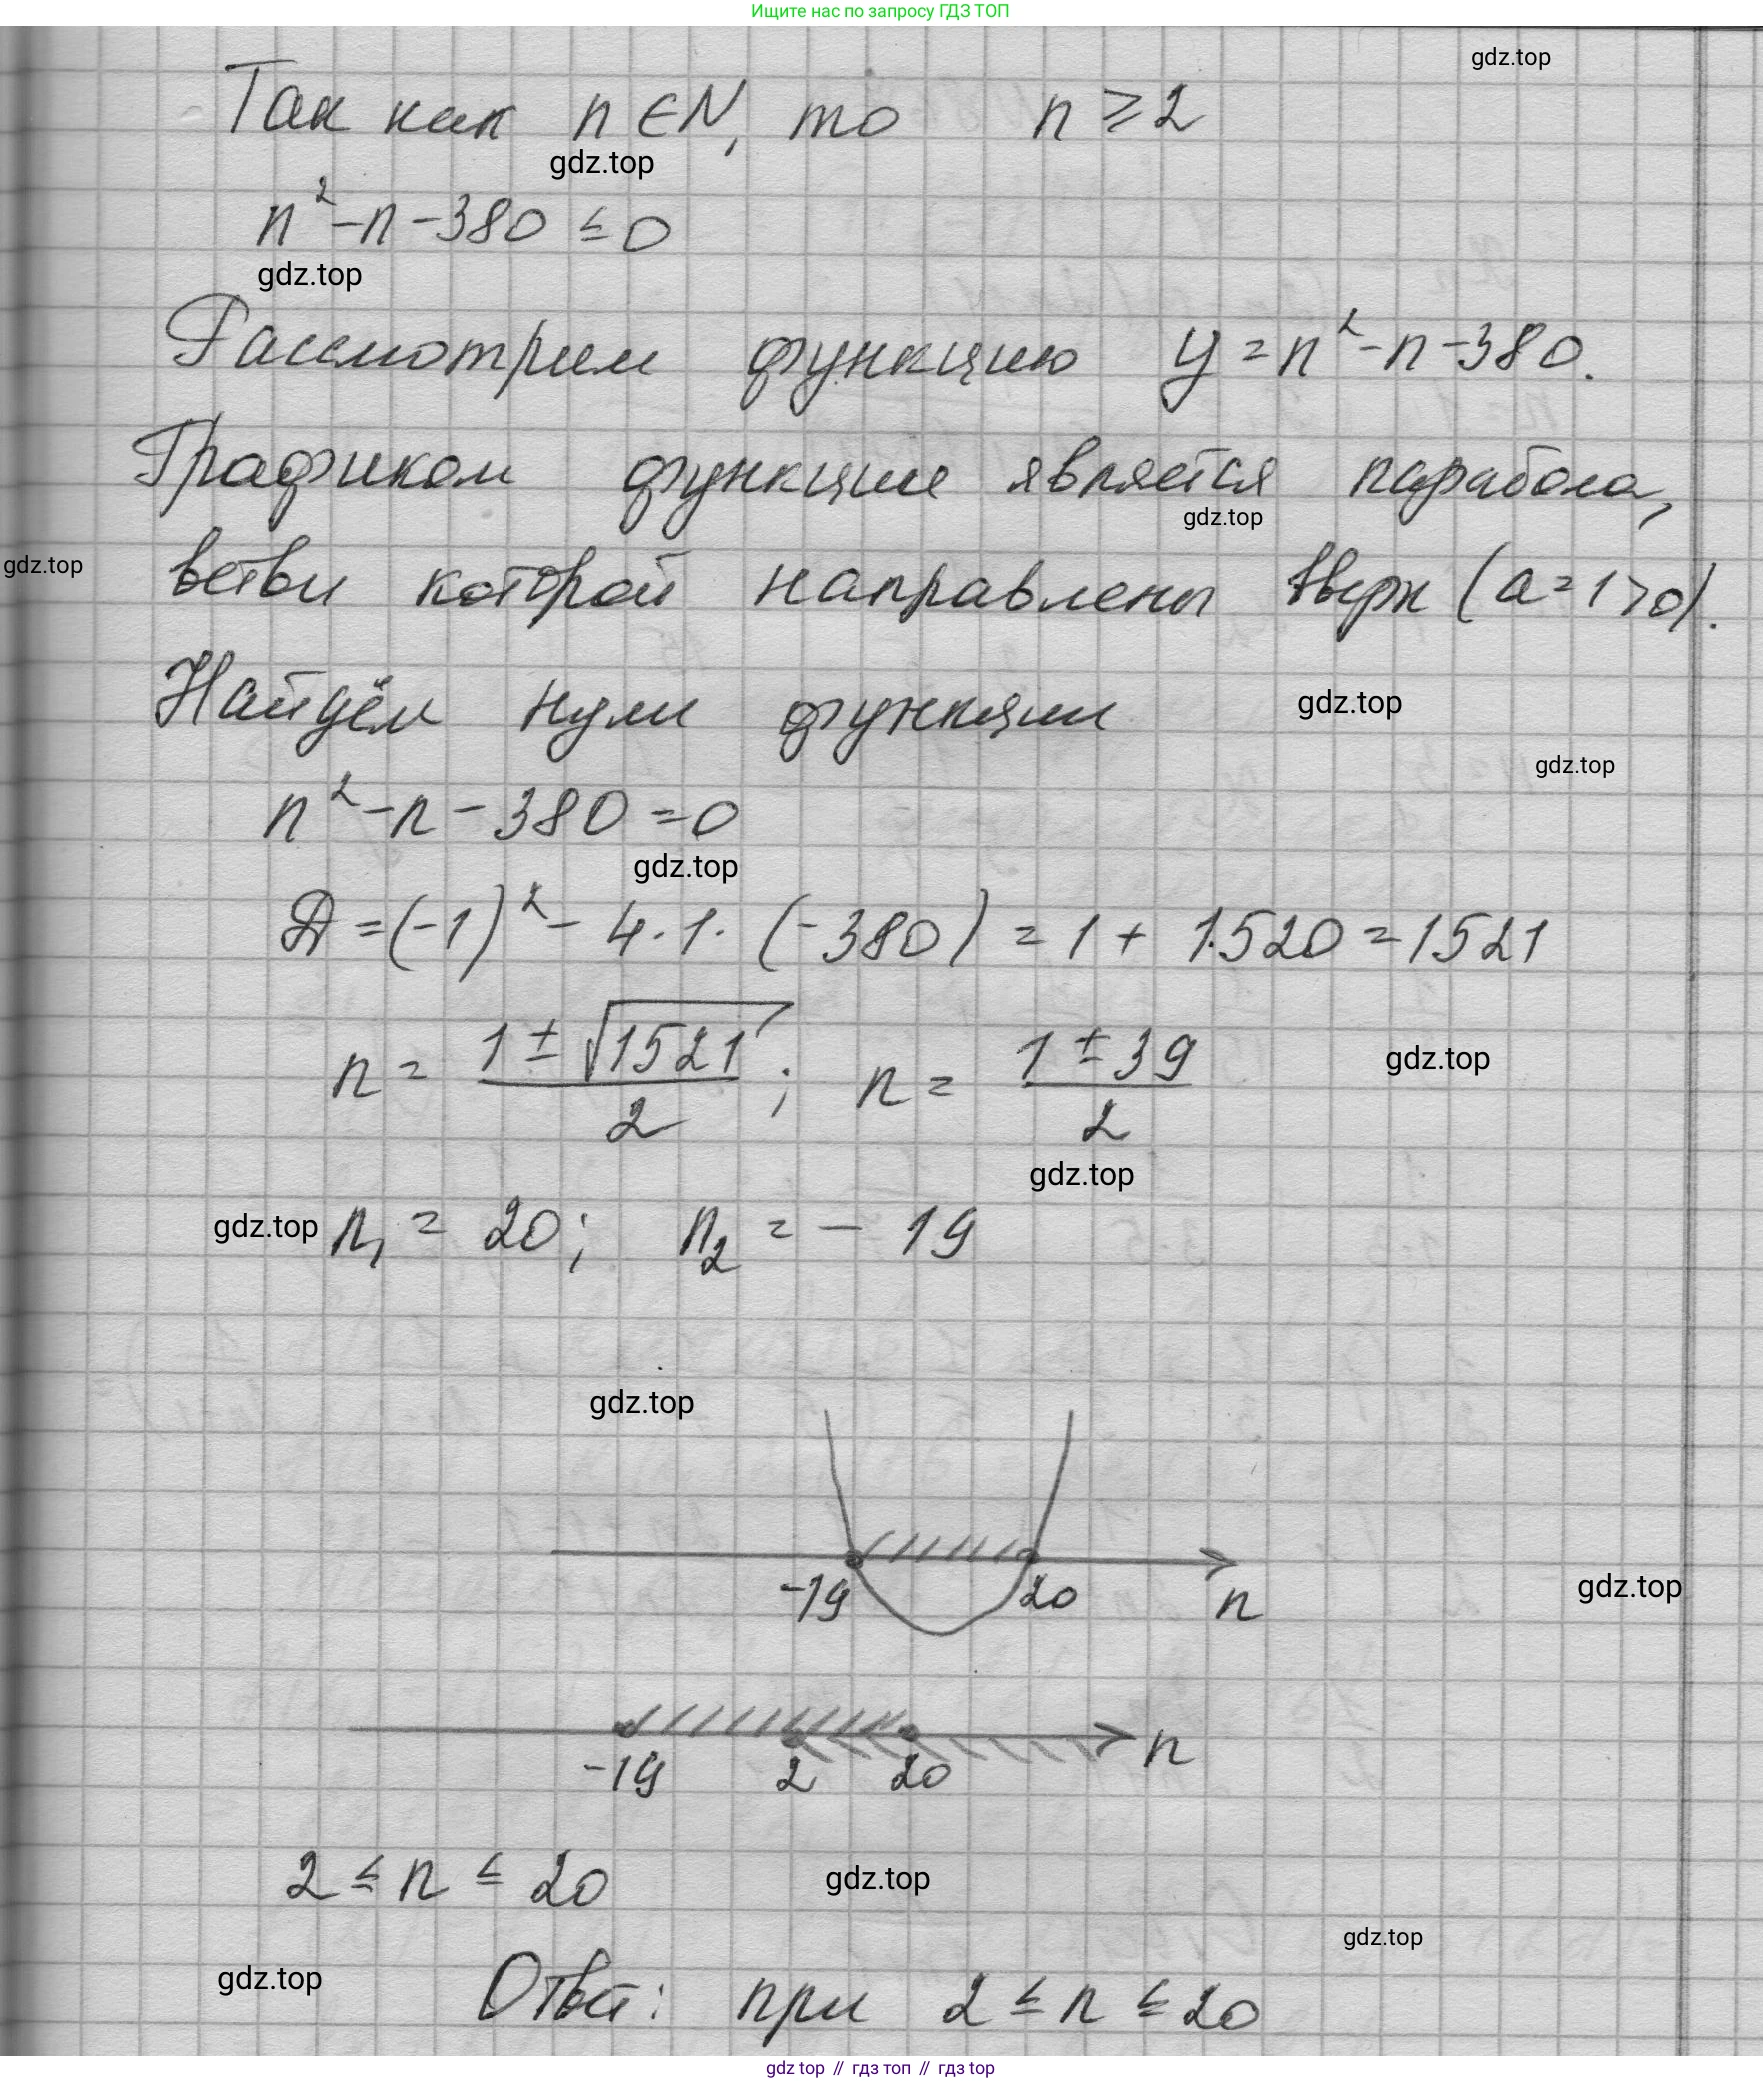 Ищите нас по запросу ГДЗ ТОП
gdz.top
Так как n ∈ N, то n ≥ 2
gdz.top
n² - n - 380 ≤ 0
gdz.top
Рассмотрим функцию y = n² - n - 380.
Графиком функции является парабола,
gdz.top
gdz.top
ветви которой направлены вверх (a = 1 > 0).
Найдём нули функции
gdz.top
gdz.top
n² - n - 380 = 0
gdz.top
D = (-1)² - 4 · 1 · (-380) = 1 + 1520 = 1521
n = (1 ± √1521)/2 ; n = (1 ± 39)/2
gdz.top
gdz.top
gdz.top
n₁ = 20; n₂ = - 19
gdz.top
-19 20 n
gdz.top
-19 2 20 n
2 ≤ n ≤ 20
gdz.top
gdz.top
gdz.top
Ответ: при 2 ≤ n ≤ 20
gdz top // гдз топ // gdz top